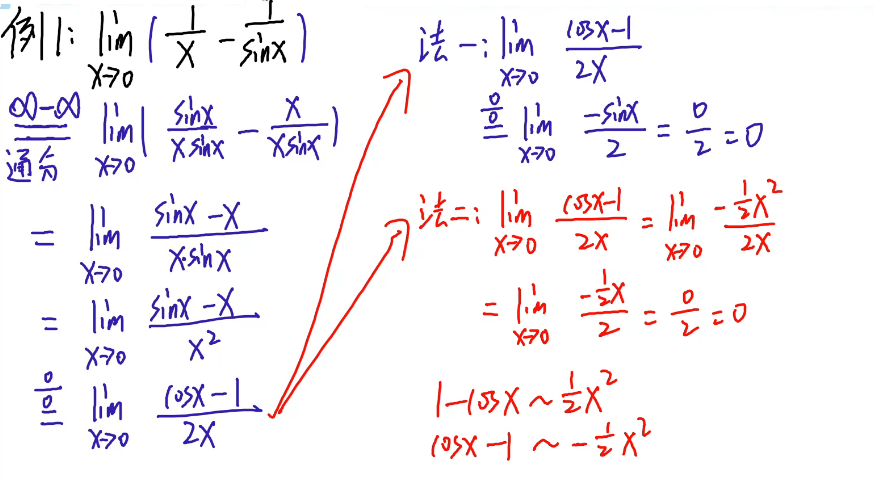 例1: lim x→0 ( 1/x - 1/sinx )
∞-∞ 通分 = lim x→0 ( sinx/(x sinx) - x/(x sinx) )
= lim x→0 (sinx - x)/(x·sinx)
= lim x→0 (sinx - x)/x²
0/0 = lim x→0 (cosx - 1)/2x
法一: lim x→0 (cosx-1)/2x
0/0 = lim x→0 -sinx/2 = 0/2 = 0
法二: lim x→0 (cosx-1)/2x = lim x→0 (-½x²)/2x
= lim x→0 (-½x)/2 = 0/2 = 0
1-cosx ~ ½x²
cosx-1 ~ -½x²